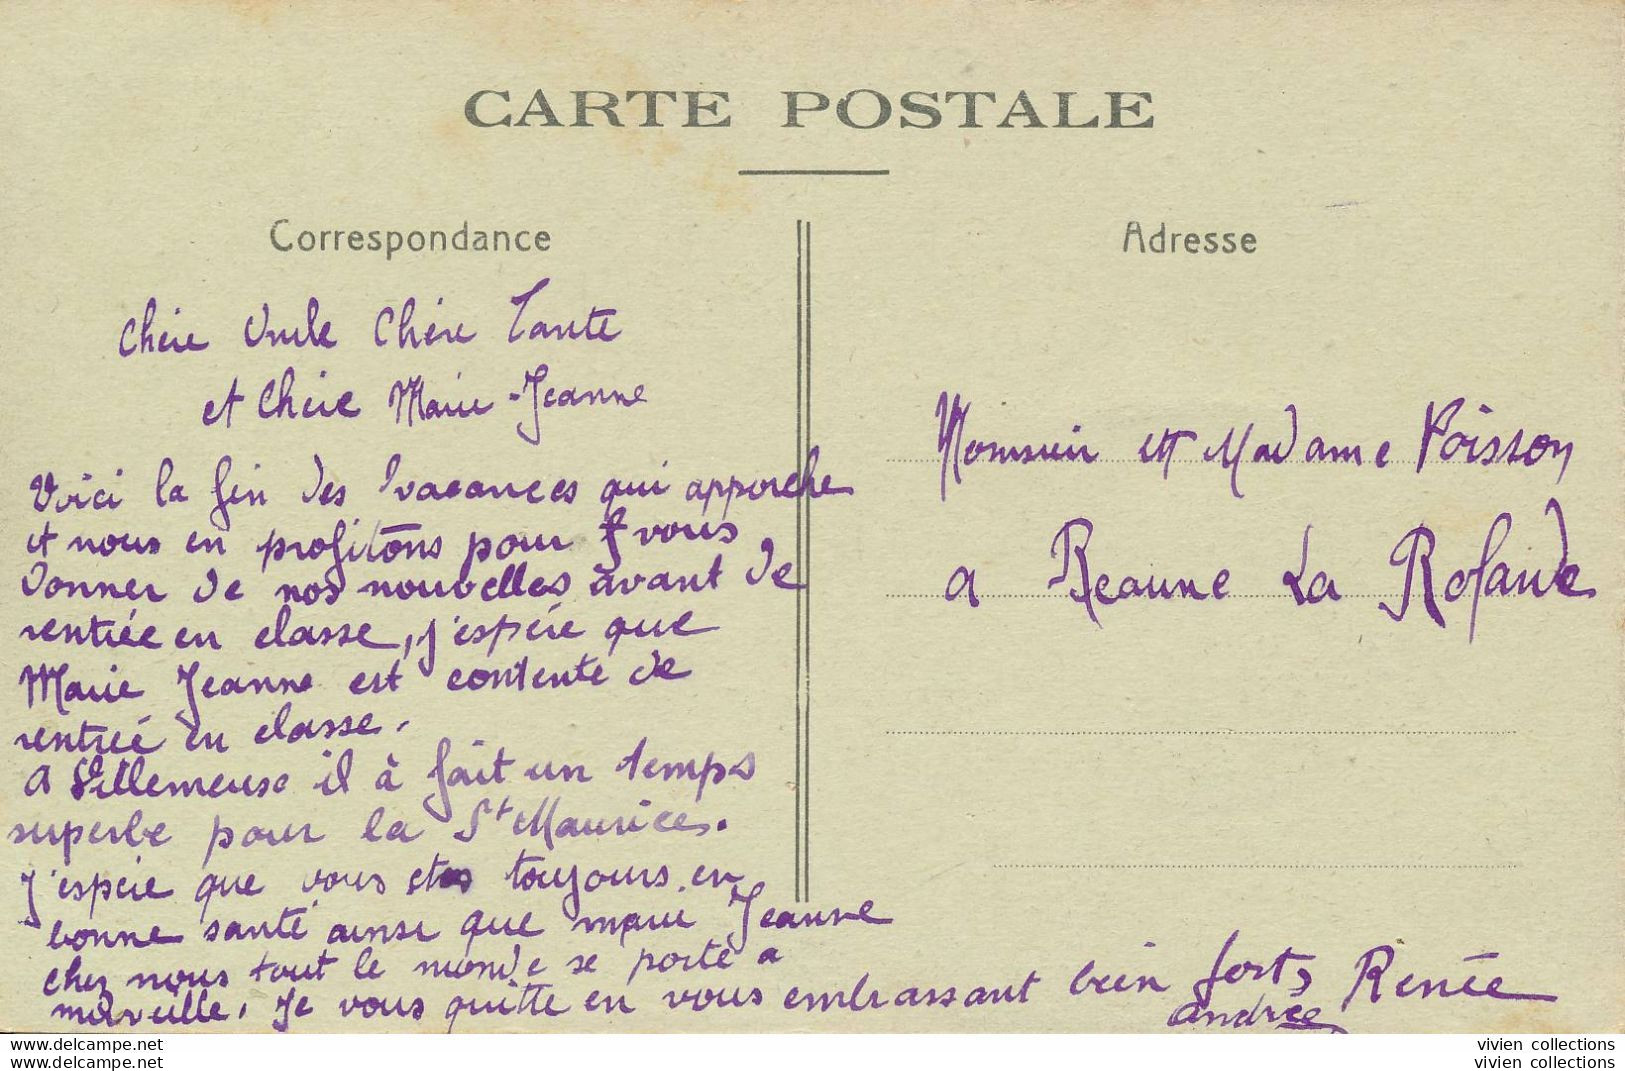 CARTE POSTALE
Correspondance
Chère Oncle Chère Tante
et Chère Marie-Jeanne
Voici la fin des vacances qui approche
et nous en profitons pour vous
donner de nos nouvelles avant de
rentrée en classe, j'espère que
Marie Jeanne est contente de
rentrée en classe.
A Villemeuse il à fait un temps
superbe pour la St Maurice.
J'espère que vous etes toujours en
bonne santé ainsi que marie Jeanne
chez nous tout le monde se porte a
merveille. Je vous quitte en vous embrassant bien forts Renée
andrée
Adresse
Monsieur et Madame Poisson
a Beaune La Rolande
delcampe.net
vivien collections
delcampe.net
vivien collections